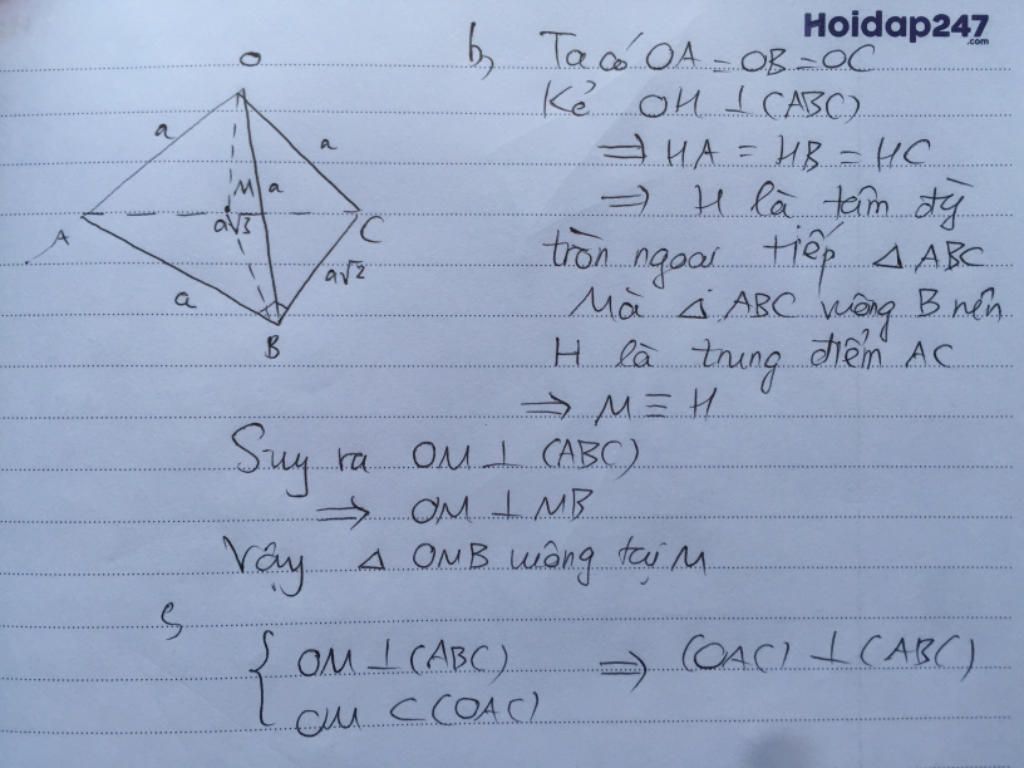 Hoidap247
.com
O
a
a
M
a
A
a√3
C
a
a√2
B
b, Ta có OA = OB = OC
Kẻ OH ⊥ (ABC)
⇒ HA = HB = HC
⇒ H là tâm đg̀
tròn ngoại tiếp △ ABC
Mà △ ABC vuông B nên
H là trung điểm AC
⇒ M ≡ H
Suy ra OM ⊥ (ABC)
⇒ OM ⊥ MB
Vậy △ OMB vuông tại M
{ OM ⊥ (ABC) ⇒ (OAC) ⊥ (ABC)
OM ⊂ (OAC)